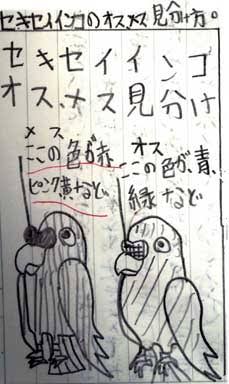 セキセイインコのオスメス見分け方。
セキセイインコ
オス、メス見分け
メス
ここの色が赤
ピンク黄など
オス
ここの色が、青、
緑など